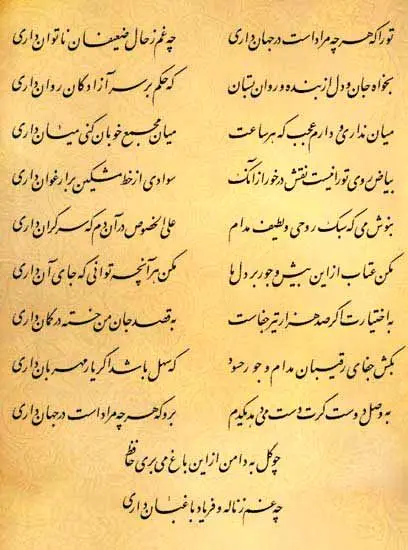 تو را که هر چه مراد است در جهان داری چه غم ز حال ضعیفان ناتوان داری
بخواه جان و دل از بنده و روان بستان که حکم بر سر آزادگان روان داری
میان نداری و دارم عجب که هر ساعت میان مجمع خوبان کنی میان داری
بیاض روی تو را نیست نقش درخور از آنک سوادی از خط مشکین بر ارغوان داری
بنوش می که سبک روحی و لطیف مدام علی الخصوص در آن دم که سر گران داری
مکن عتاب از این بیش و جور بر دل ما مکن هر آنچه توانی که جای آن داری
به اختیارت اگر صد هزار تیر جفاست به قصد جان من خسته در کمان داری
بکش جفای رقیبان مدام و جور حسود که سهل باشد اگر یار مهربان داری
به وصل دوست گرت دست می‌دهد یک دم برو که هر چه مراد است در جهان داری
چو گل به دامن از این باغ می‌بری حافظ
چه غم ز ناله و فریاد باغبان داری